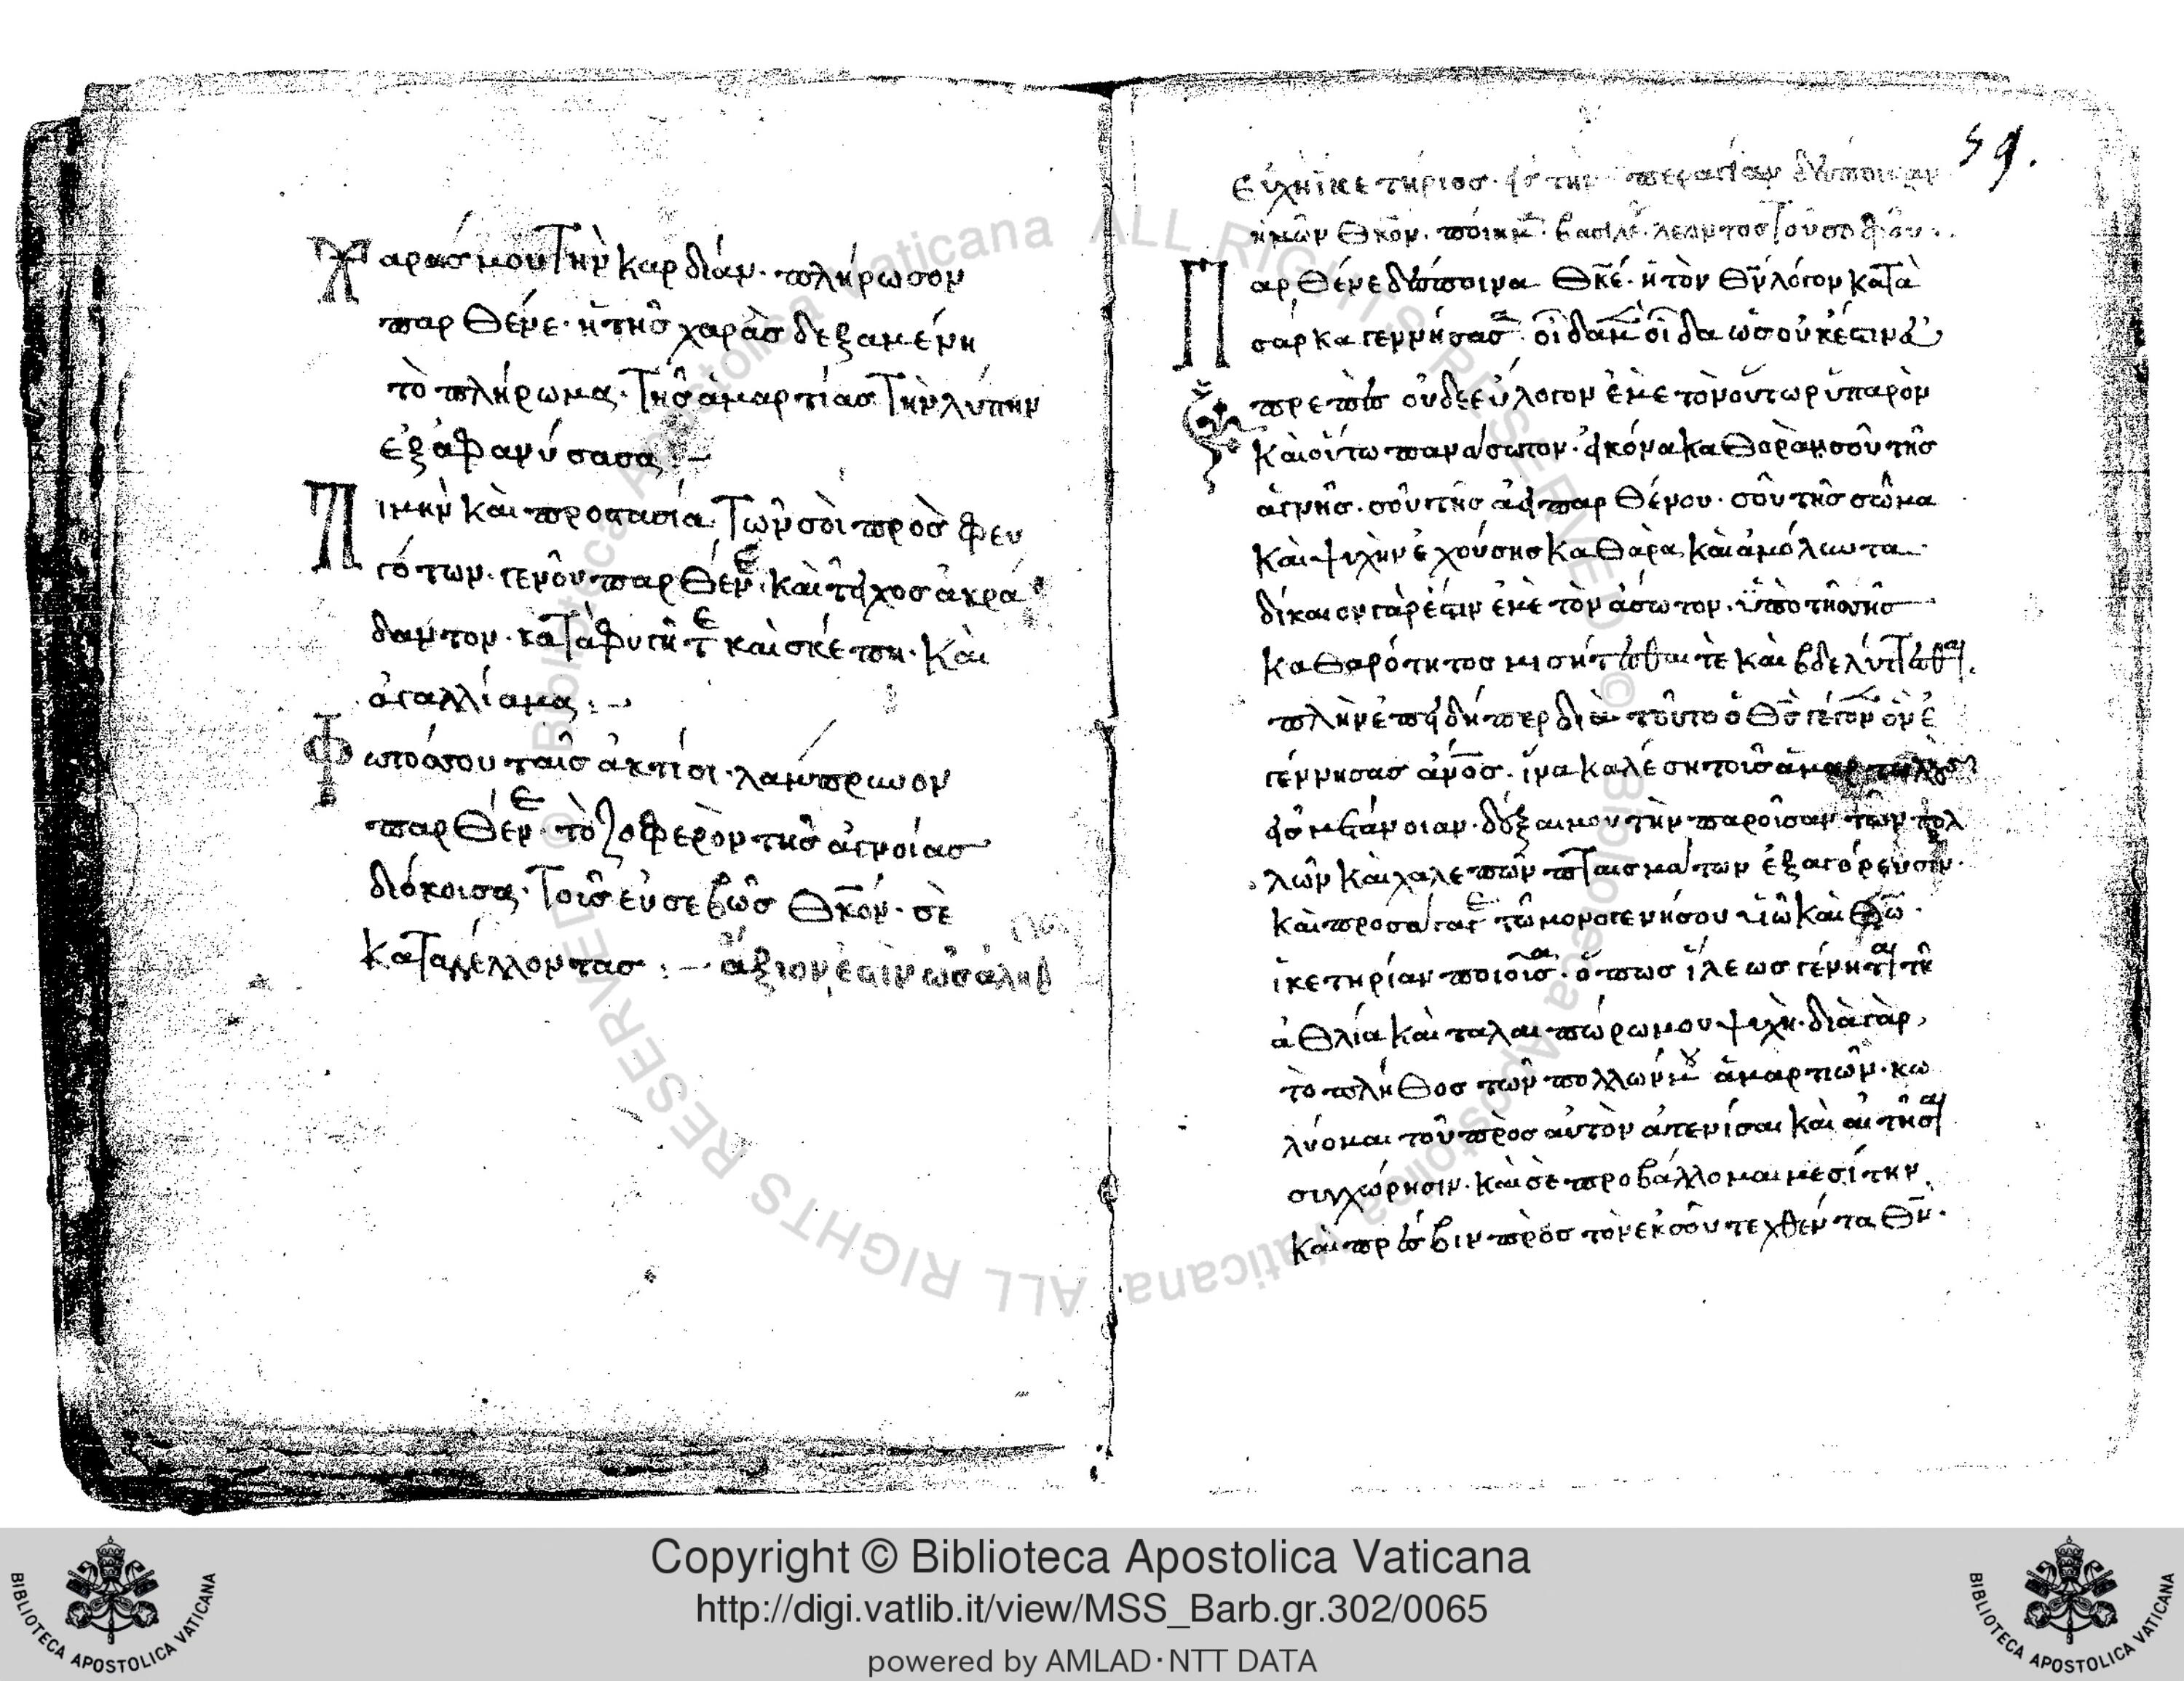 Χαρᾶς μου Τὴν καρδίαν· πλήρωσον
παρθένε· ἡ τῆς χαρὰς δεξαμένη
τὸ πλήρωμα· Τῆς ἁμαρτίας Τὴν λύπην
ἐξαφανύσασα :–
ιμην καὶ προστασία, Τῶν σοὶ πρὸσφευ
γότων· γενοῦ παρθέν(ε)· καὶ τεῖχος ἀκρά
δαντον· καταφυγή τε καὶ σκέπη· Καὶ
ἀγαλλίαμα :–
Φωτός σου ταῖς ἀκτίσι· λάμπρυνον
παρθέν(ε)· τὸ ζοφερὸν τῆς ἀγνοίας
διόκουσα· Τοῖς εὐσεβῶς Θκ̅ον· σὲ
Καταγγέλλοντας :– ἄξιον ἐστὶν ὡς ἀληθ
59.
Εὐχὴ ἱκετήριος· εἰς τὴν ὑπεραγίαν δέσποιναν
ἡμῶν Θκ̅ον· ποίημ· βασιλε· λέοντος Τοῦ σοφοῦ·
Παρθένε δέσποινα Θκ̅ε· ἡ τὸν Θῡ λόγον κατὰ
σάρκα γεννήσασα· οἶδα μ οἶδα ὡς οὐκ ἔστιν εὐ
πρεπὲς οὐδὲ εὔλογον ἐμὲ τὸν οὕτω ρυπαρὸν
Καὶ οὕτω πανάσωτον· εἰκόνα καθορὰν σοῦ τῆς
ἁγνῆς· σοῦ τῆς ἀει παρθένου· σοῦ τῆς σῶμα
Καὶ ψυχὴν ἐχούσης καθαρὰ καὶ ἀμόλυντα·
δίκαιον γὰρ ἐστιν ἐμὲ τὸν άσωτον· ὑπὸ τῆς σῆς
καθαρότητος μισήτέσθαι τὲ καὶ βδελύττεσθαι·
πλὴν ἐπειδήπερ διὰ τοῦτο ὁ Θς̅ γέγονεν ὃν ἐ
γέννησας ἀν̅ος· ἵνα καλέση τοὺς ἁμαρτωλοὺς
εἰς μετάνοιαν· δέξαι μου τὴν παροῦσαν τῶν πολ
λῶν καὶ χαλεπῶν πταισμάτων ἐξαγόρευσιν·
καὶ προσάγαγε τῶ μονογενῆ σου υἱῶ καὶ Θω̅·
ἱκετηρίαν ποιοῦσα· ὅπως ἵλεως γένηται τῆ
ἀθλία καὶ ταλαιπώρω μου ψυχῆ· διὰ γὰρ
τὸ πλῆθος τῶν πολλῶν μου ἁμαρτιῶν· κω
λύομαι τοῦ πρὸς αὐτὸν ἀτενίσαι καὶ αἰτῆσαι
συγχώρησιν· καὶ σὲ προβάλλομαι μεσίτην
Καὶ πρέσβιν πρὸς τὸν ἐκ σοῦ τεχθέντα Θν̅·
Copyright © Biblioteca Apostolica Vaticana
http://digi.vatlib.it/view/MSS_Barb.gr.302/0065
powered by AMLAD·NTT DATA
BIBLIOTECA APOSTOLICA VATICANA
BIBLIOTECA APOSTOLICA VATICANA